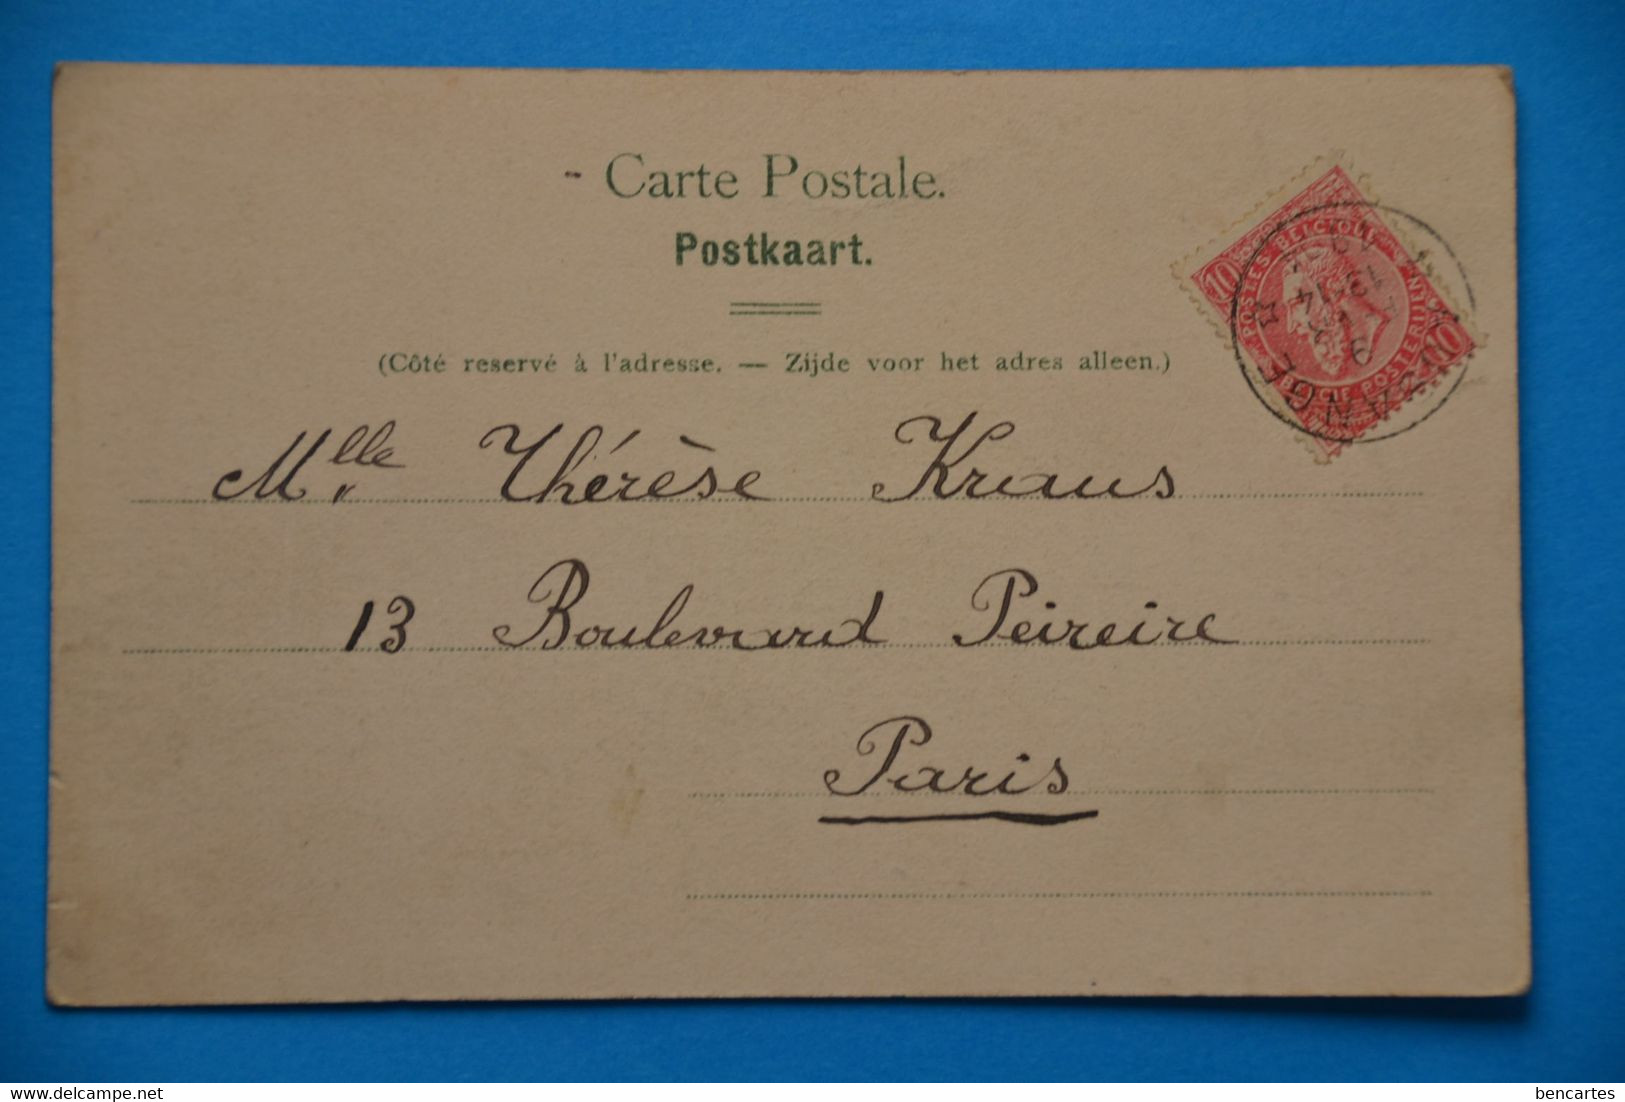 Carte Postale.
Postkaart.
POSTES BELGIQUE
BELGIE POSTERIJEN
10 10
13-14
9
(Côté reservé à l'adresse. — Zijde voor het adres alleen.)
Mlle Thérèse Kraus
13 Boulevard Peireire
Paris
www.delcampe.net
bencartes